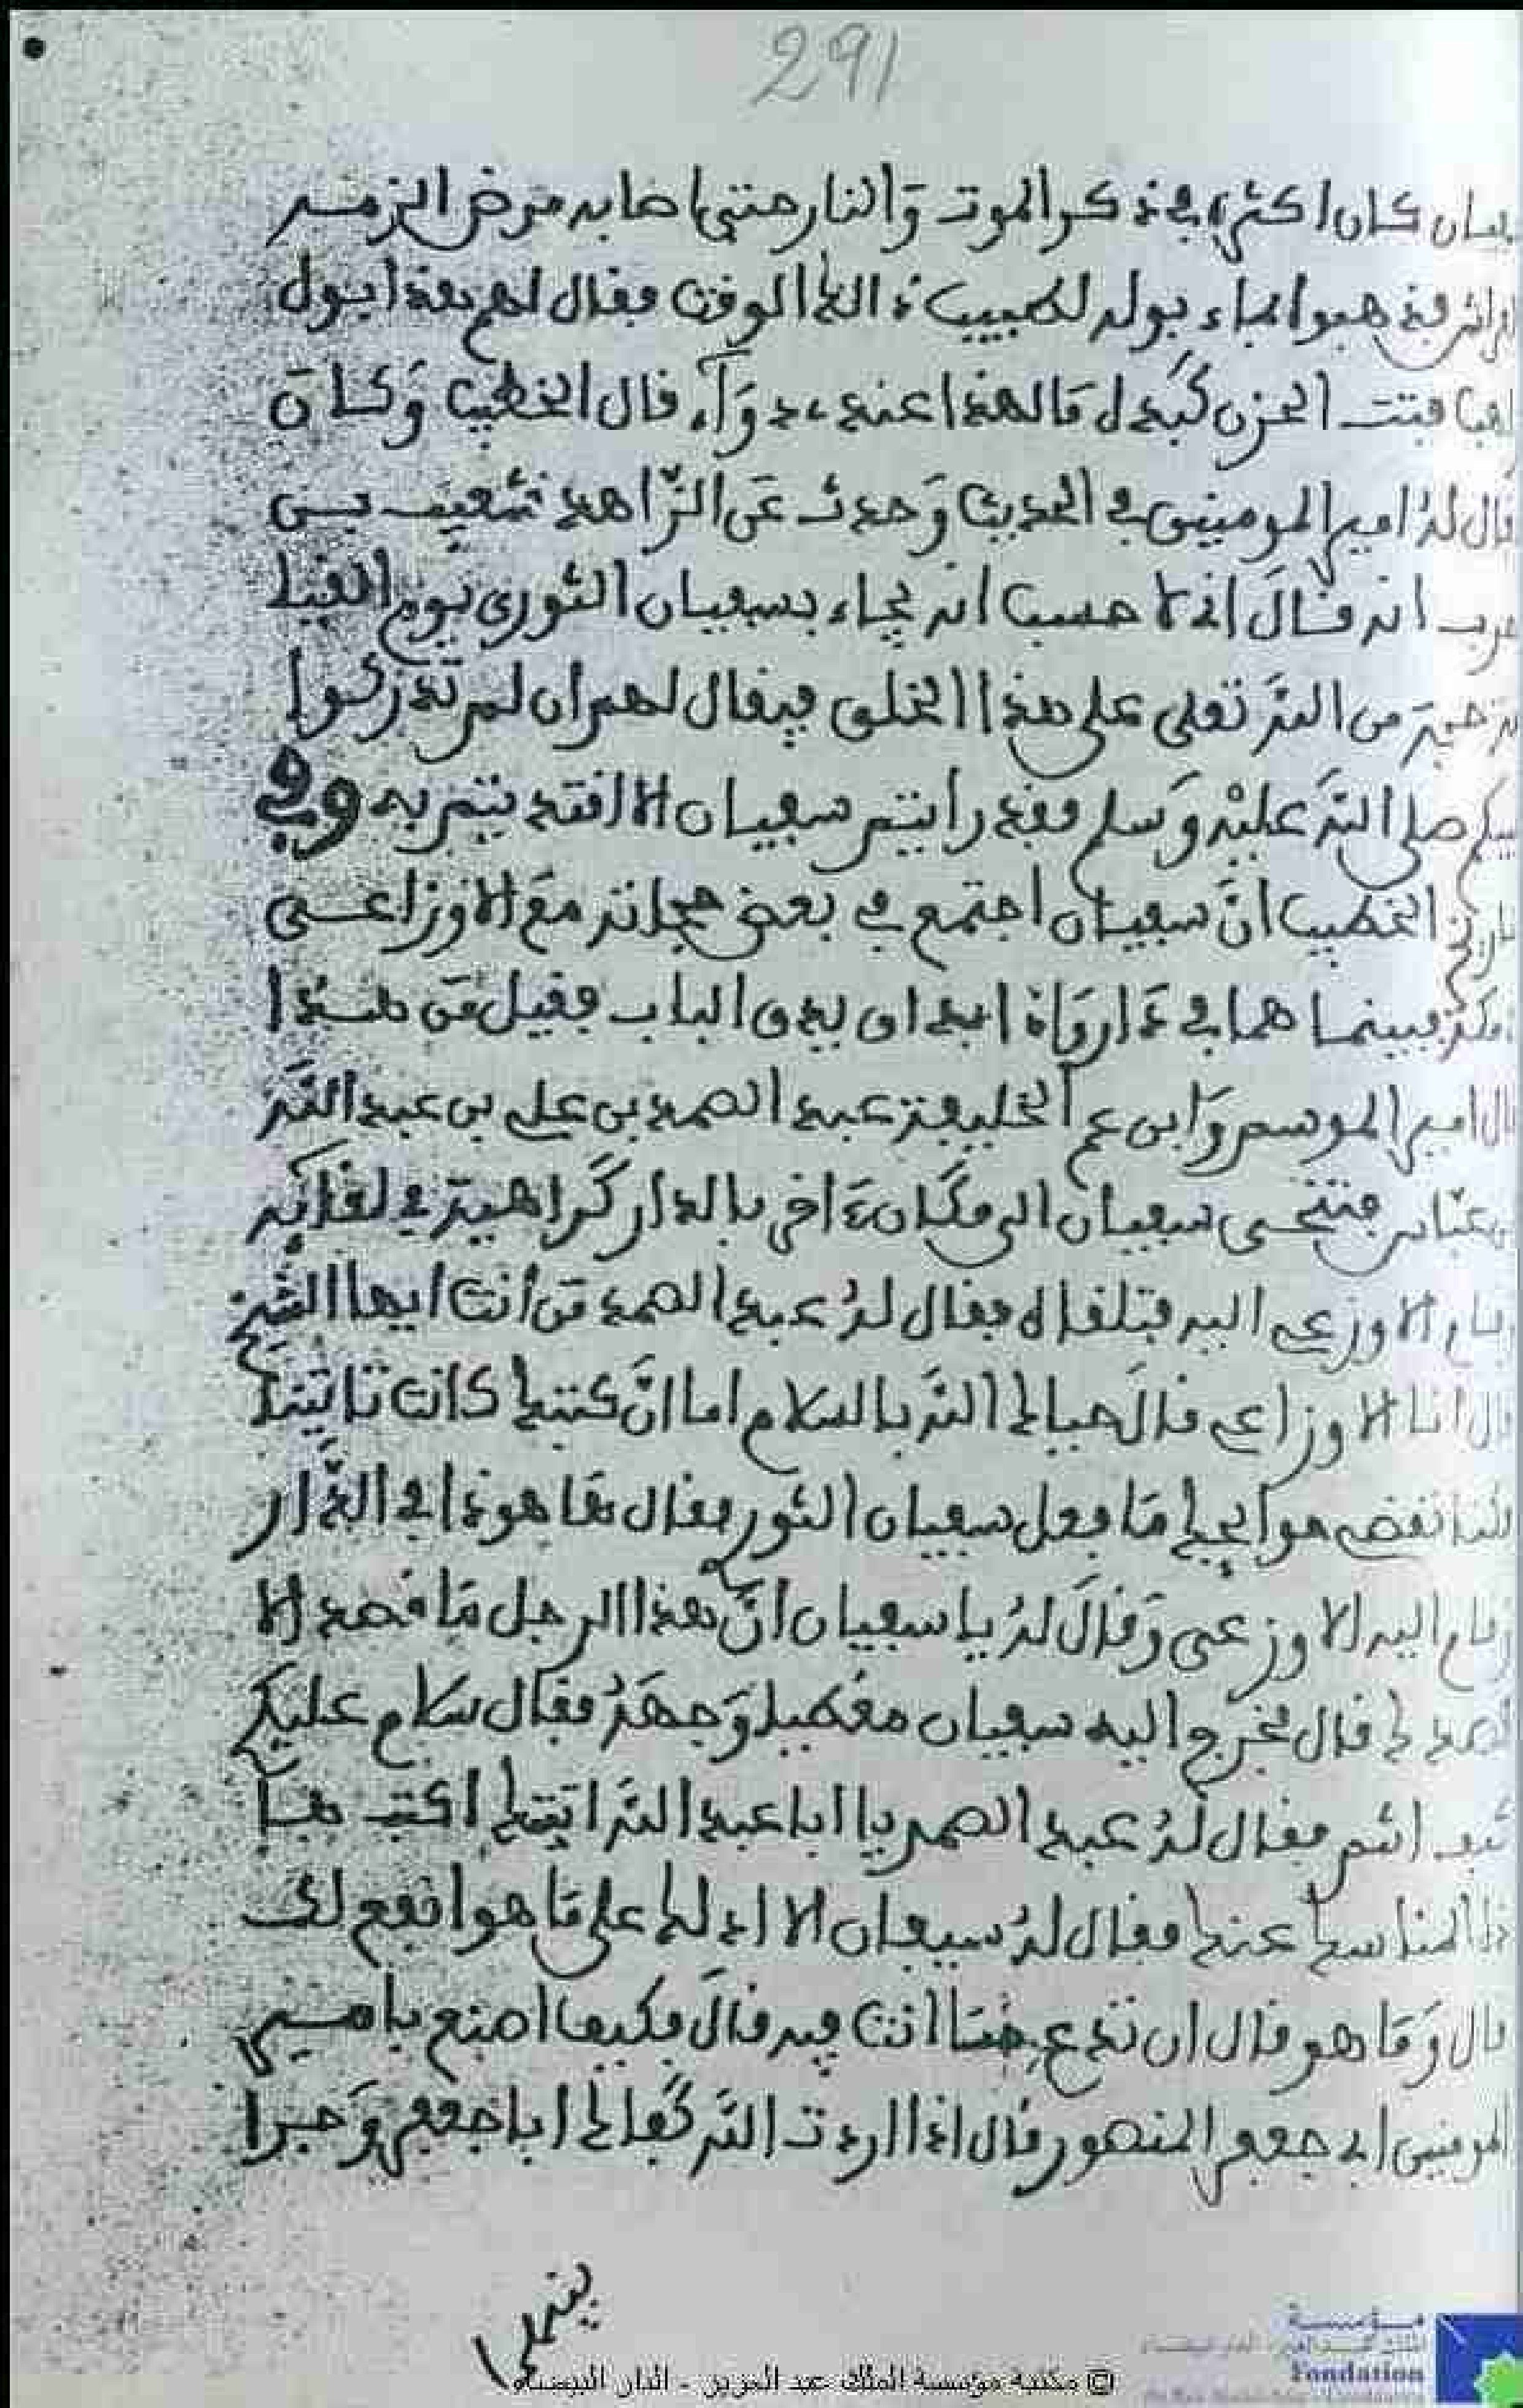 291
كان اكثر في ذكر الموت وَالنار حتى اصابه مرض الزمه
فذهبوا بماء بوله لطبيب ذالك الوقت فقال لهم هذا بول
فتت الحزن كبده مَا لهذا عنده دوَآء قال الخطيب وَكان
قال لهُ امير المومنين في الحديث وَحدث عَن الزّاهد شعيب بن
حرب انه قالَ اني لاحسب انه يجاء بسفيان الثوري يوم القيا
من اللهَ تعلى على هذا الخلق فيقال لهم ان لم تدركوا
صلى اللهَ عليْه وَسلم فقد رايتم سفيان الا اقتديتم به وفي
تاريخ الخطيب انّ سفيان اجتمع في بعض حجاته معَ الاوزاعي
فبينما هما في دَار وَاذا بداق يدق الباب فقيل مَن هذا
قال امير الموسم وَابن عم الخليفة عبد الصمد بن علي بن عبد اللهَ
عبّاس فتنحى سفيان الى مكَان ءَاخر بالدار كَراهية في لقائه
وقام الاوزعي اليه فتلقاه فقال لهُ عبد الصمد مَن أنت ايها الشيخ
قال انا الاوزاعي قالَ حياك اللهَ بالسلام اما انّ كتبك كانت تاتينا
نقضي حوائجك مَا فعل سفيان الثور فقال هَا هوذا في الدّار
وقام اليه الاوزعى وَقالَ لهُ يا سفيان انّ هذا الرجل مَا قصد الا
قصدك قال فخرج اليه سفيان مقطبا وَجههُ فقال سلام عليكم
انتم فقال لهُ عبد الصمد يا ابا عبد اللهَ اتيتك اكتب هذا
المناسك عنك فقال لهُ سفيان الا ادلك على مَا هو انفع لك
قال وَمَا هو قال ان تدع مَا انت فيه قالَ فكيف اصنع بامير
المومنين ابي جعفر المنصور قال اذا اردت اللهَ كفاك ابا جعفر وَجزا
© مكتبة مؤسسة الملك عبد العزيز - الدار البيضاء
مؤسسة
Fondation